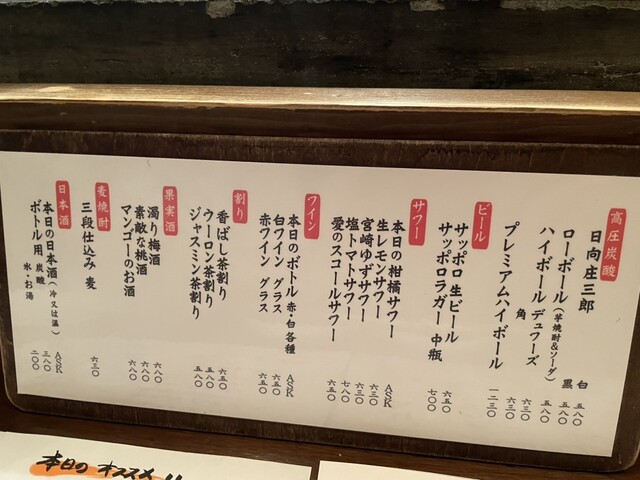 高圧炭酸
日向庄三郎
ローボール(芋焼酎&ソーダ) 白 五八〇
黒 五八〇
ハイボール デュワーズ 五八〇
角 六三〇
プレミアムハイボール 一二三〇
ビール
サッポロ 生ビール 六五〇
サッポロラガー 中瓶 七〇〇
サワー
本日の柑橘サワー ASK
生レモンサワー 六三〇
宮崎ゆずサワー 六三〇
塩トマトサワー 七八〇
愛のスコールサワー 六五〇
ワイン
本日のボトル 赤・白各種 ASK
白ワイン グラス 六五〇
赤ワイン グラス 六五〇
割り
香ばし茶割り 六五〇
ウーロン茶割り 五八〇
ジャスミン茶割り 五八〇
果実酒
濁り梅酒 六八〇
素敵な桃酒 六八〇
マンゴーのお酒 六八〇
麦焼酎
三段仕込み 麦 六三〇
日本酒
本日の日本酒(冷又は温) ASK
ボトル用 炭酸 三八〇
氷・お湯 二〇〇
本日の オススメ!!